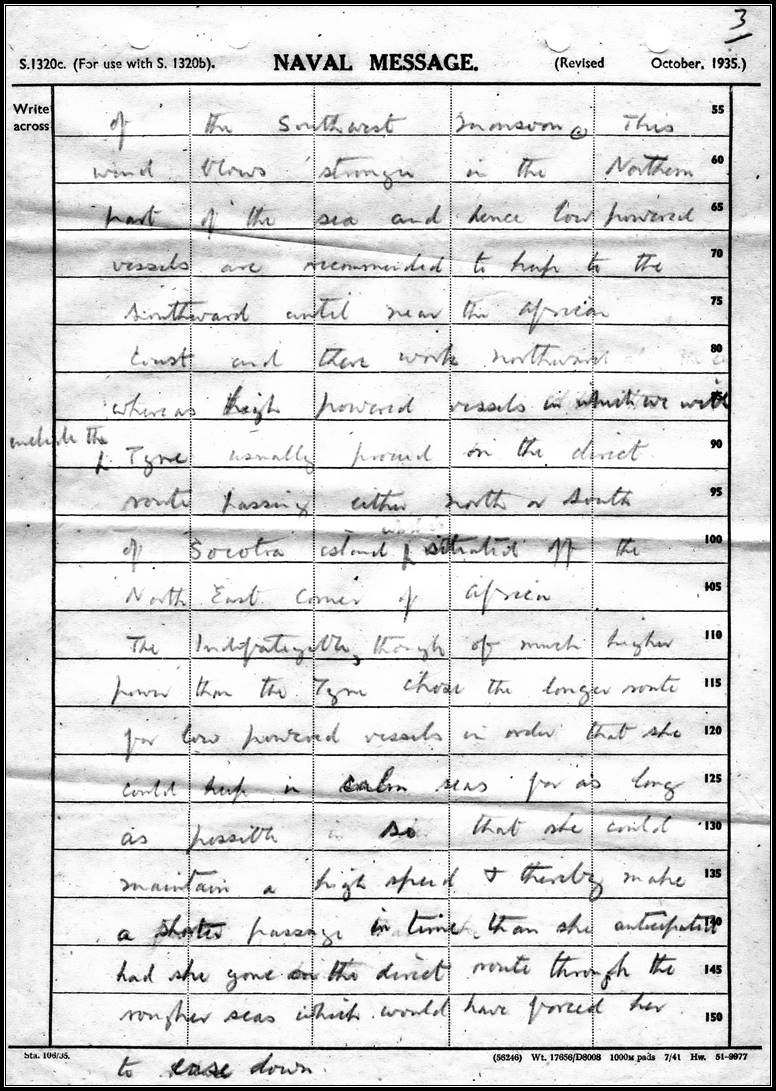 3
S.1320c. (For use with S. 1320b). NAVAL MESSAGE. (Revised October, 1935.)
Write across
of the Southwest Monsoon. This 55
wind blows stronger in the Northern 60
part of the sea and hence low powered 65
vessels are recommended to keep to the 70
Southward until near the African 75
Coast and there work northward 80
whereas high powered vessels in which we will
include the
Tyne usually proceed on the direct 90
route passing either north or South 95
of Socotra island situated off the 100
North East Corner of Africa 105
The Indefatigable, though of much higher 110
power than the Tyne chose the longer route 115
for low powered vessels in order that she 120
could keep in calm seas for as long 125
as possible so that she could 130
maintain a high speed & thereby make 135
a shorter passage in time than she anticipated 140
had she gone on the direct route through the 145
rougher seas which would have forced her 150
to ease down.
Sta. 106/35. (56246) Wt. 17656/D8008 1000M pads 7/41 Hw. 51-9977